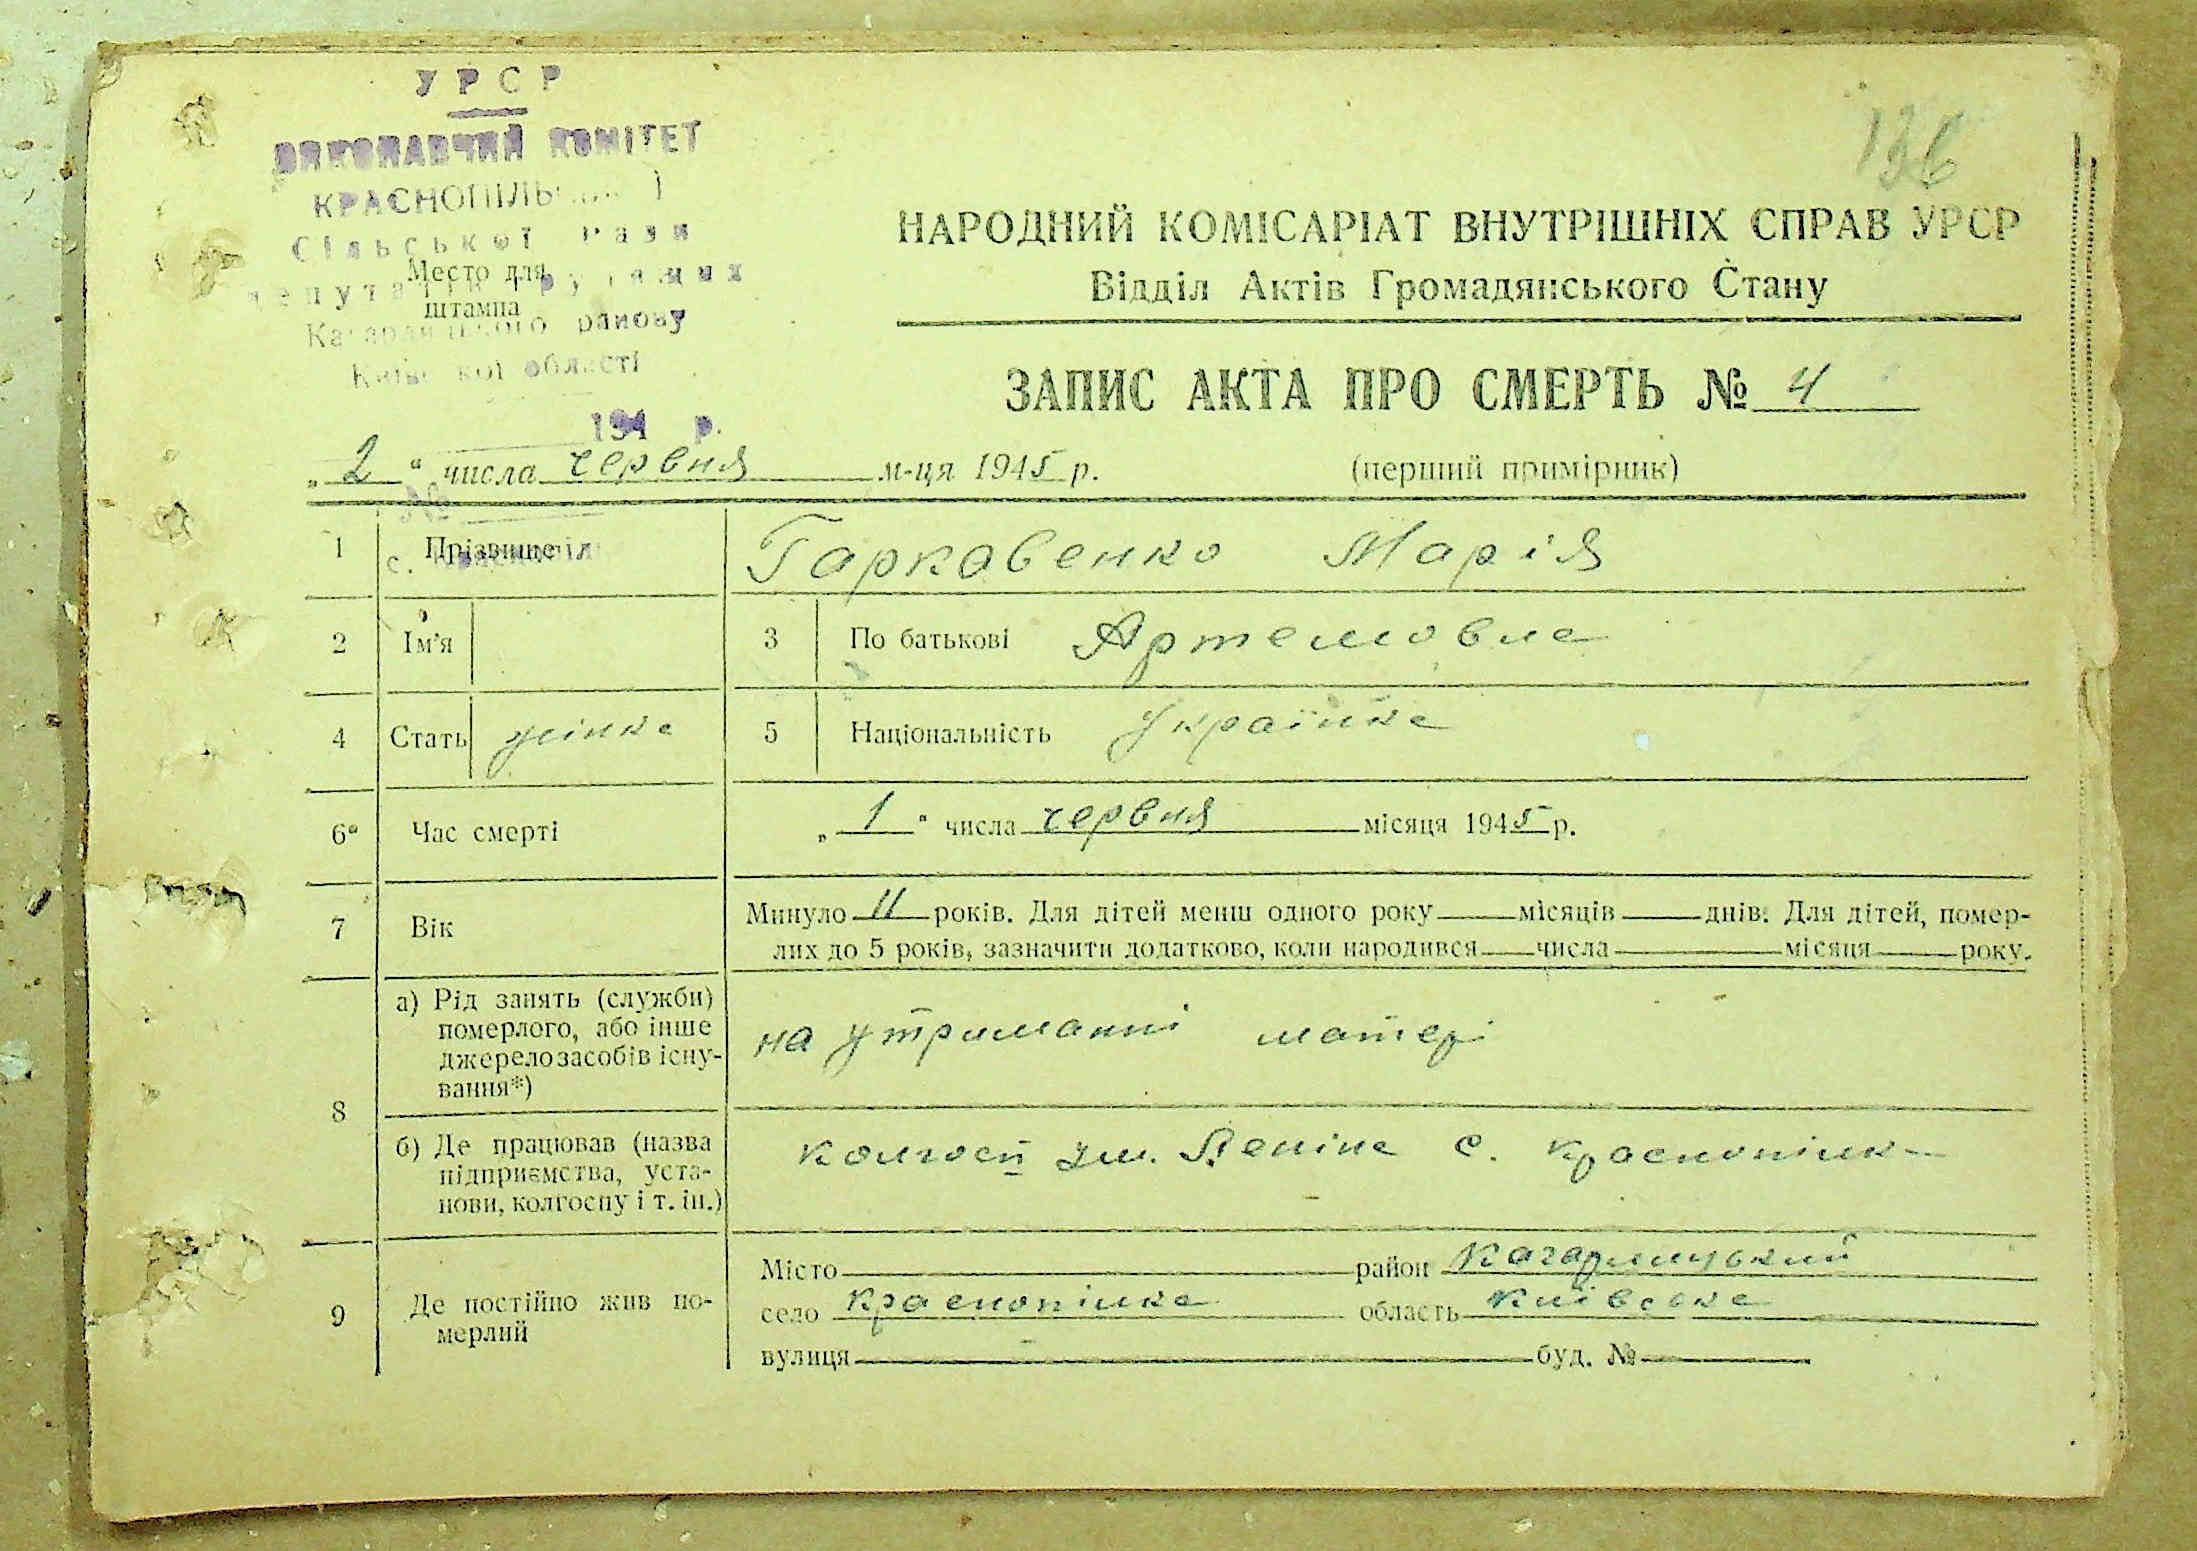 УРСР
ВИКОНАВЧИЙ КОМІТЕТ
КРАСНОПІЛЬ
Сільської Ради
депутатів трудящих
Место для
штампа
Кагарлицького району
Київської області
194 р.
136
НАРОДНИЙ КОМІСАРІАТ ВНУТРІШНІХ СПРАВ УРСР
Відділ Актів Громадянського Стану
ЗАПИС АКТА ПРО СМЕРТЬ № 4
„ 2 “ числа червня м-ця 1945 р. (перший примірник)
№
1 Прізвище Гарковенко Марія
с.
2 Ім'я 3 По батькові Артемовна
4 Стать жінка 5 Національність Українка
6а Час смерті „ 1 “ числа червня місяця 1945 р.
7 Вік Минуло 11 років. Для дітей менш одного року місяців днів. Для дітей, помер-
лих до 5 років, зазначити додатково, коли народився числа місяця року.
8 а) Рід занять (служби) померлого, або інше джерело засобів існу-вання*) на утриманні матері
б) Де працював (назва підприємства, уста-нови, колгоспу і т. ін.) колгосп ім. Леніна с. Краснопілка
9 Де постійно жив по-мерлий
Місто район Кагарлицький
село Краснопілка область Київська
вулиця буд. №